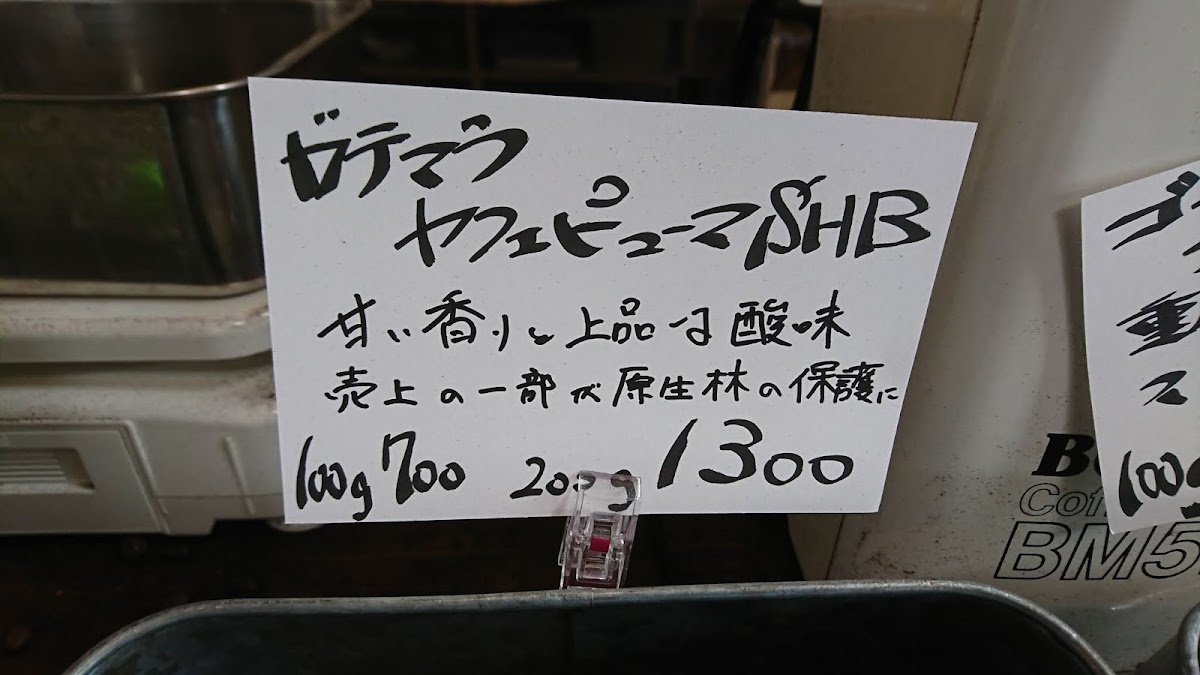 ガテマラ
カフェピューマSHB
甘い香りと上品な酸味
売上の一部が原生林の保護に
100g 700 200g 1300
100g
BM5